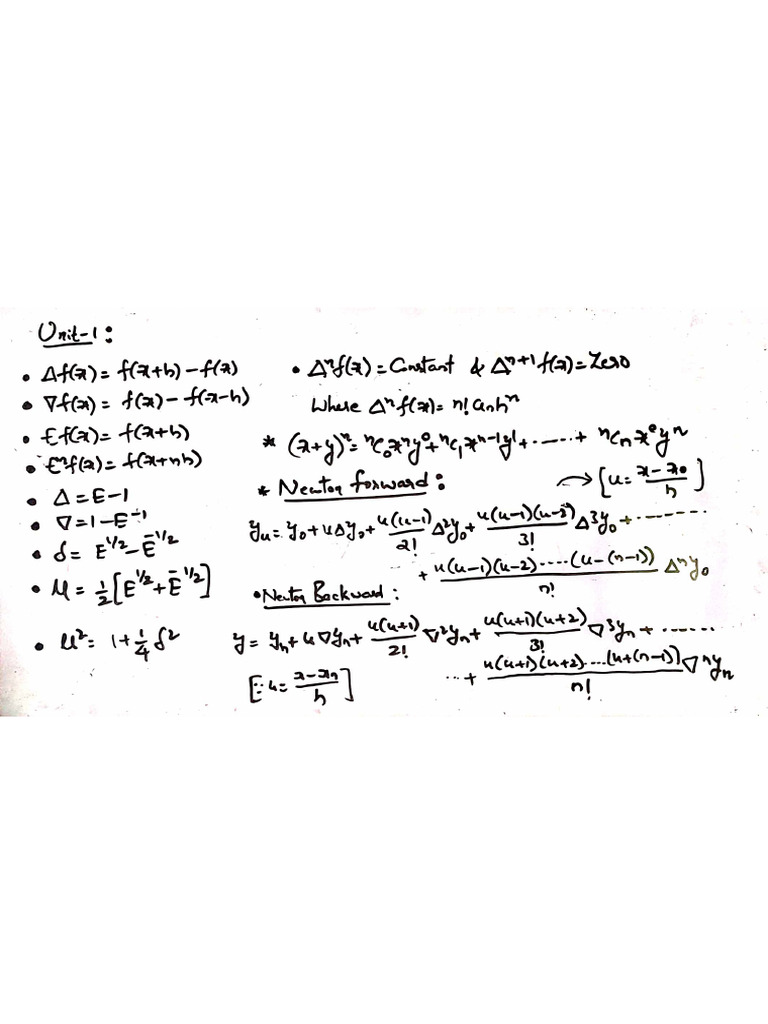 Unit-1:
• Δf(x) = f(x+h) - f(x)
• ∇f(x) = f(x) - f(x-h)
• Ef(x) = f(x+h)
• Eⁿf(x) = f(x+nh)
• Δ = E-1
• ∇ = 1-E⁻¹
• δ = E^1/2 - E^-1/2
• μ = 1/2 [E^1/2 + E^-1/2]
• μ² = 1 + 1/4 δ²
• Δⁿf(x) = Constant & Δⁿ⁺¹ f(x) = Zero
Where Δⁿf(x) = n! aₙhⁿ
* (x+y)ⁿ = ⁿC₀xⁿy⁰ + ⁿC₁xⁿ⁻¹y¹ + ...... + ⁿCₙx⁰yⁿ
* Newton forward: → [u = (x-x₀)/h]
yᵤ = y₀ + uΔy₀ + u(u-1)/2! Δ²y₀ + u(u-1)(u-2)/3! Δ³y₀ + ........
+ u(u-1)(u-2).....(u-(n-1))/n! Δⁿy₀
• Newton Backward:
y = yₙ + u∇yₙ + u(u+1)/2! ∇²yₙ + u(u+1)(u+2)/3! ∇³yₙ + ......
[∵ u = (x-xₙ)/h] ...+ u(u+1)(u+2)....(u+(n-1))/n! ∇ⁿyₙ